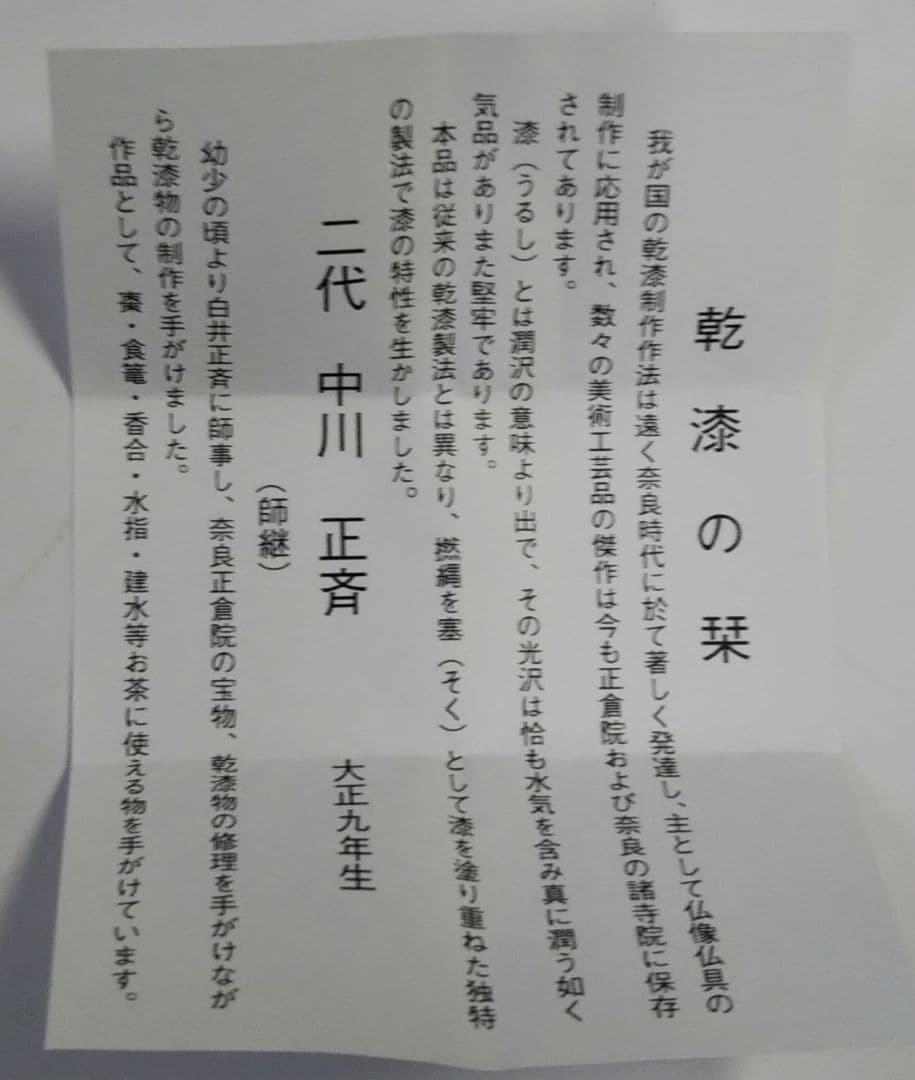 乾漆の栞
我が国の乾漆制作作法は遠く奈良時代に於て著しく発達し、主として仏像仏具の
制作に応用され、数々の美術工芸品の傑作は今も正倉院および奈良の諸寺院に保存
されてあります。
漆（うるし）とは潤沢の意味より出で、その光沢は恰も水気を含み真に潤う如く
気品がありまた堅牢であります。
本品は従来の乾漆製法とは異なり、撚縄を塞（そく）として漆を塗り重ねた独特
の製法で漆の特性を生かしました。
二代 中川 正斉 大正九年生
（師継）
幼少の頃より白井正斉に師事し、奈良正倉院の宝物、乾漆物の修理を手がけなが
ら乾漆物の制作を手がけました。
作品として、棗・食篭・香合・水指・建水等お茶に使える物を手がけています。